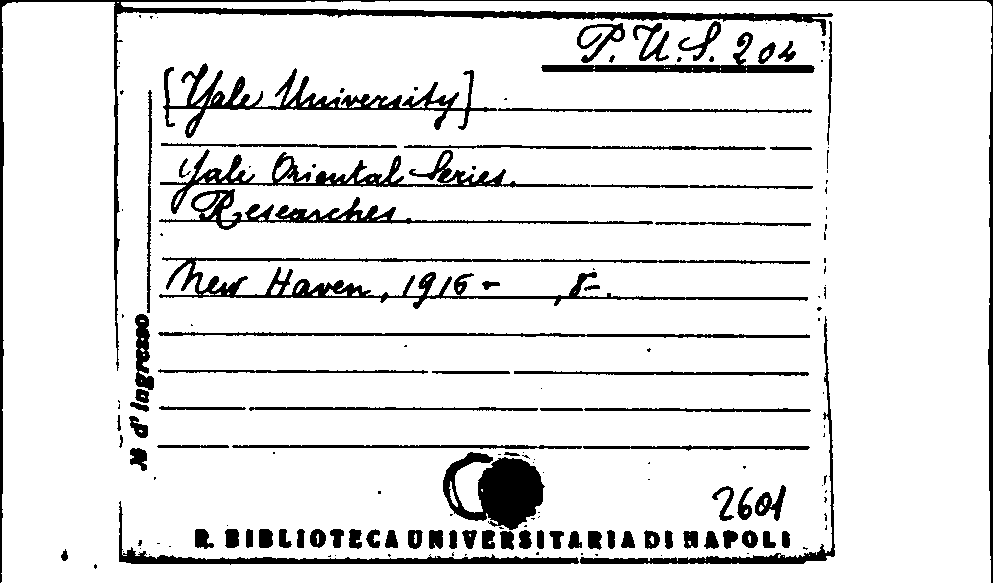 P. U. S. 204
[Yale University]
Yale Oriental Series.
Researches.
New Haven, 1916 - , 8=.
N d' ingresso
2601
R. BIBLIOTECA UNIVERSITARIA DI NAPOLI